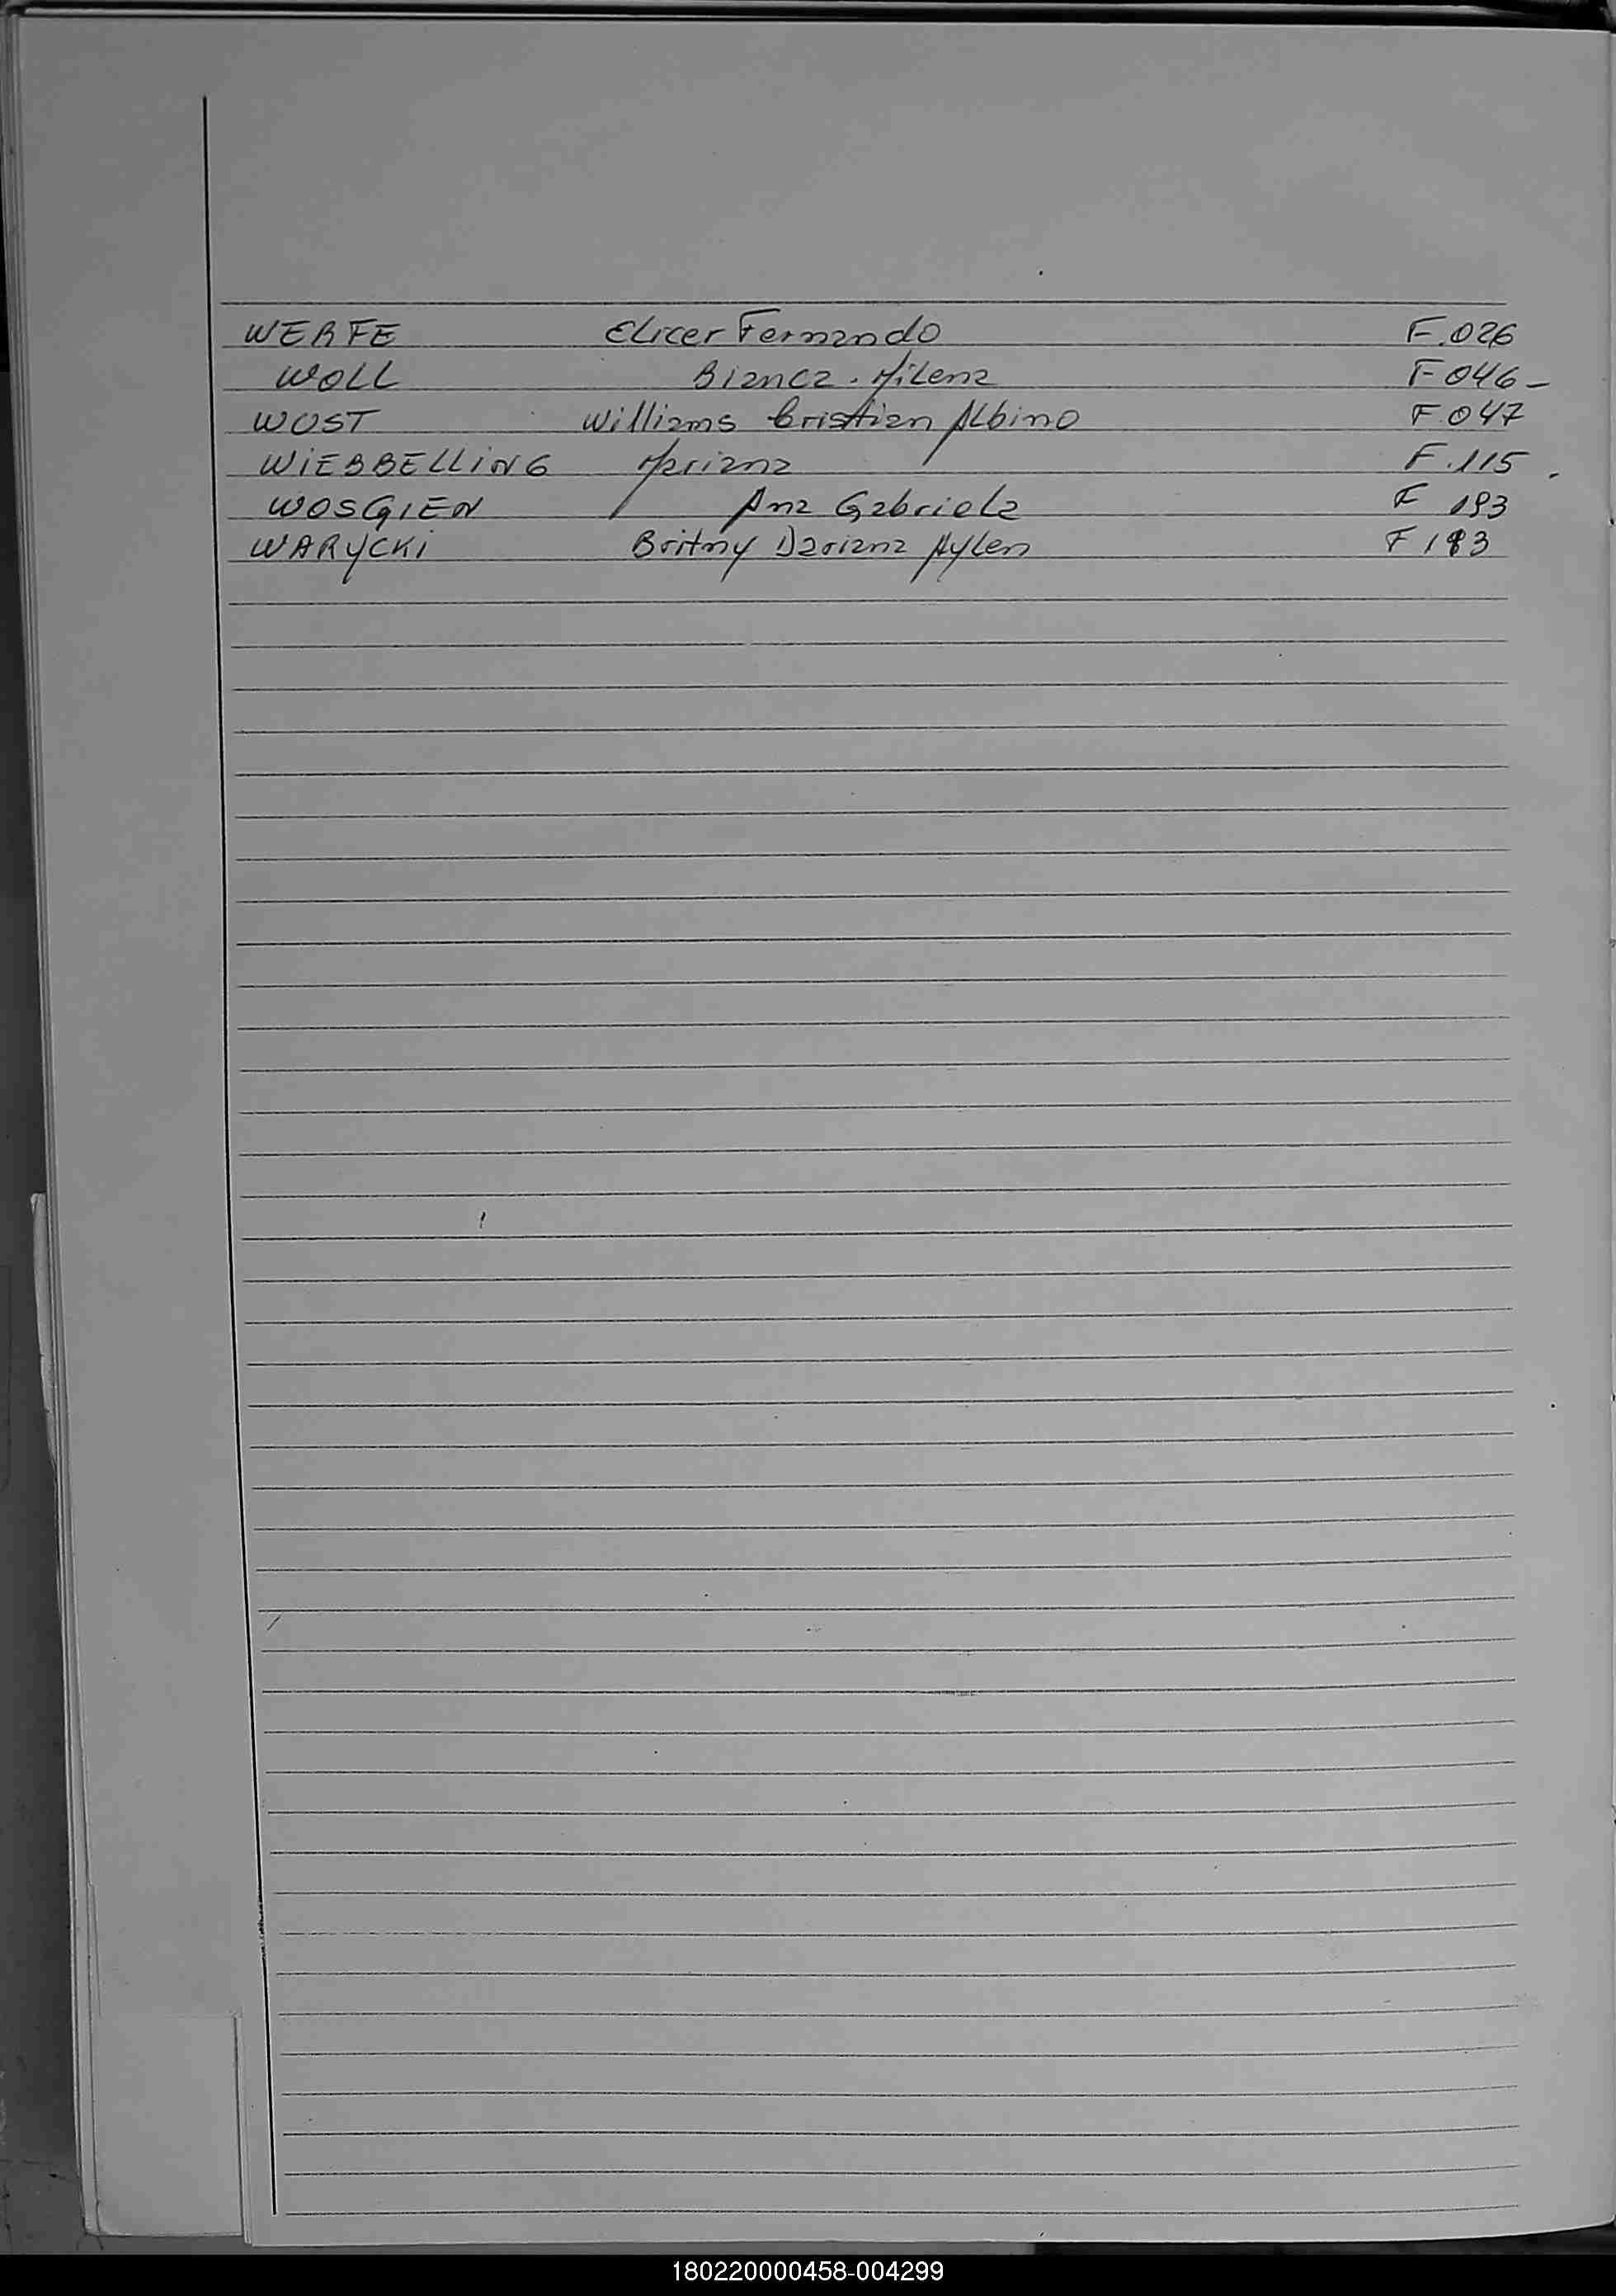 WERFE Elicer Fernando F.026
WOLL Bianca. Milena F046-
WOST Williams Cristian Albino F.047
WIEBBELLING Mariana F.115.
WOSGIEN Ana Gabriela F 193
WARYCKI Britny Dariana Aylen F 183
180220000458-004299